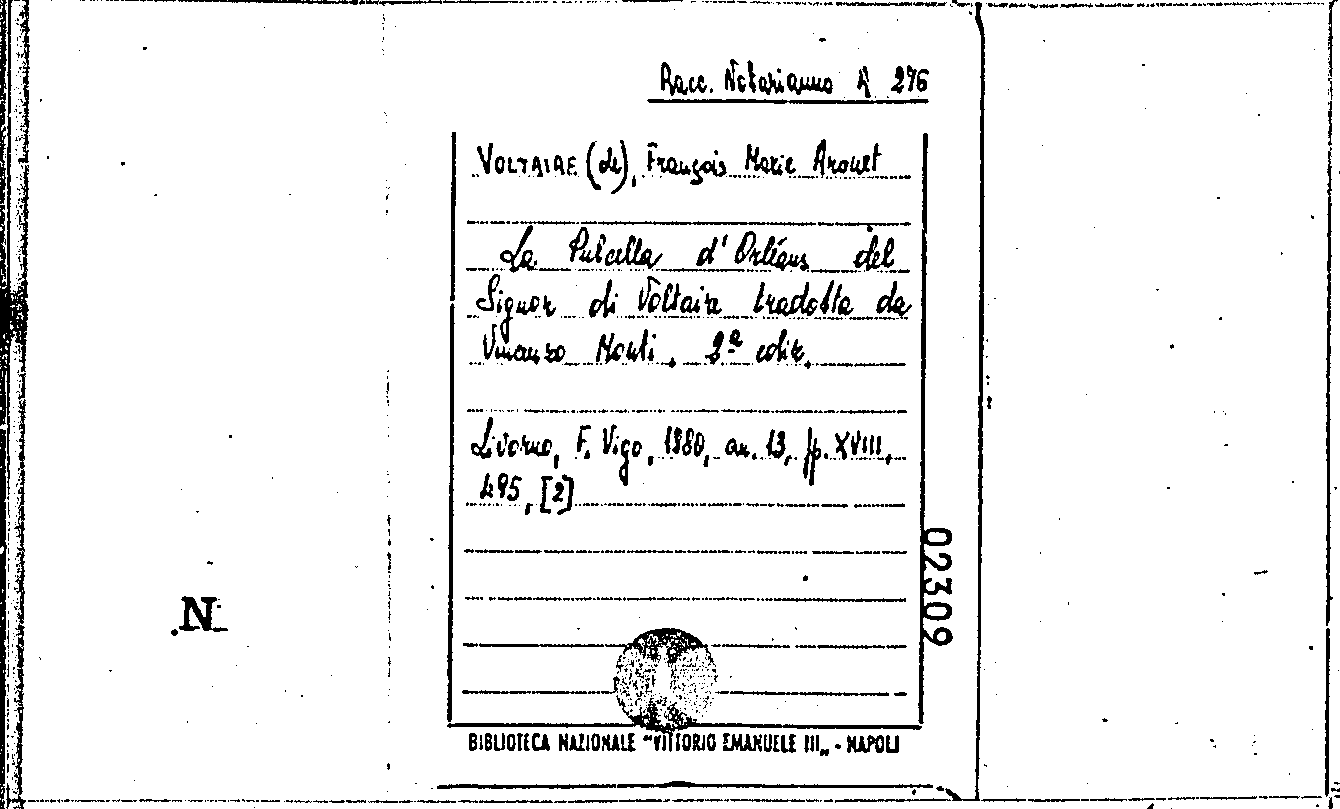 Racc. Notarianno A 276
VOLTAIRE (de), François Marie Arouet
La Pulcella d'Orléans del
Signor di Voltaire tradotta da
Vincenzo Monti. 2ª ediz.
Livorno, F. Vigo, 1880, an. 13, pp. XVIII,
495, [2]
02309
N
BIBLIOTECA NAZIONALE "VITTORIO EMANUELE III„ - NAPOLI